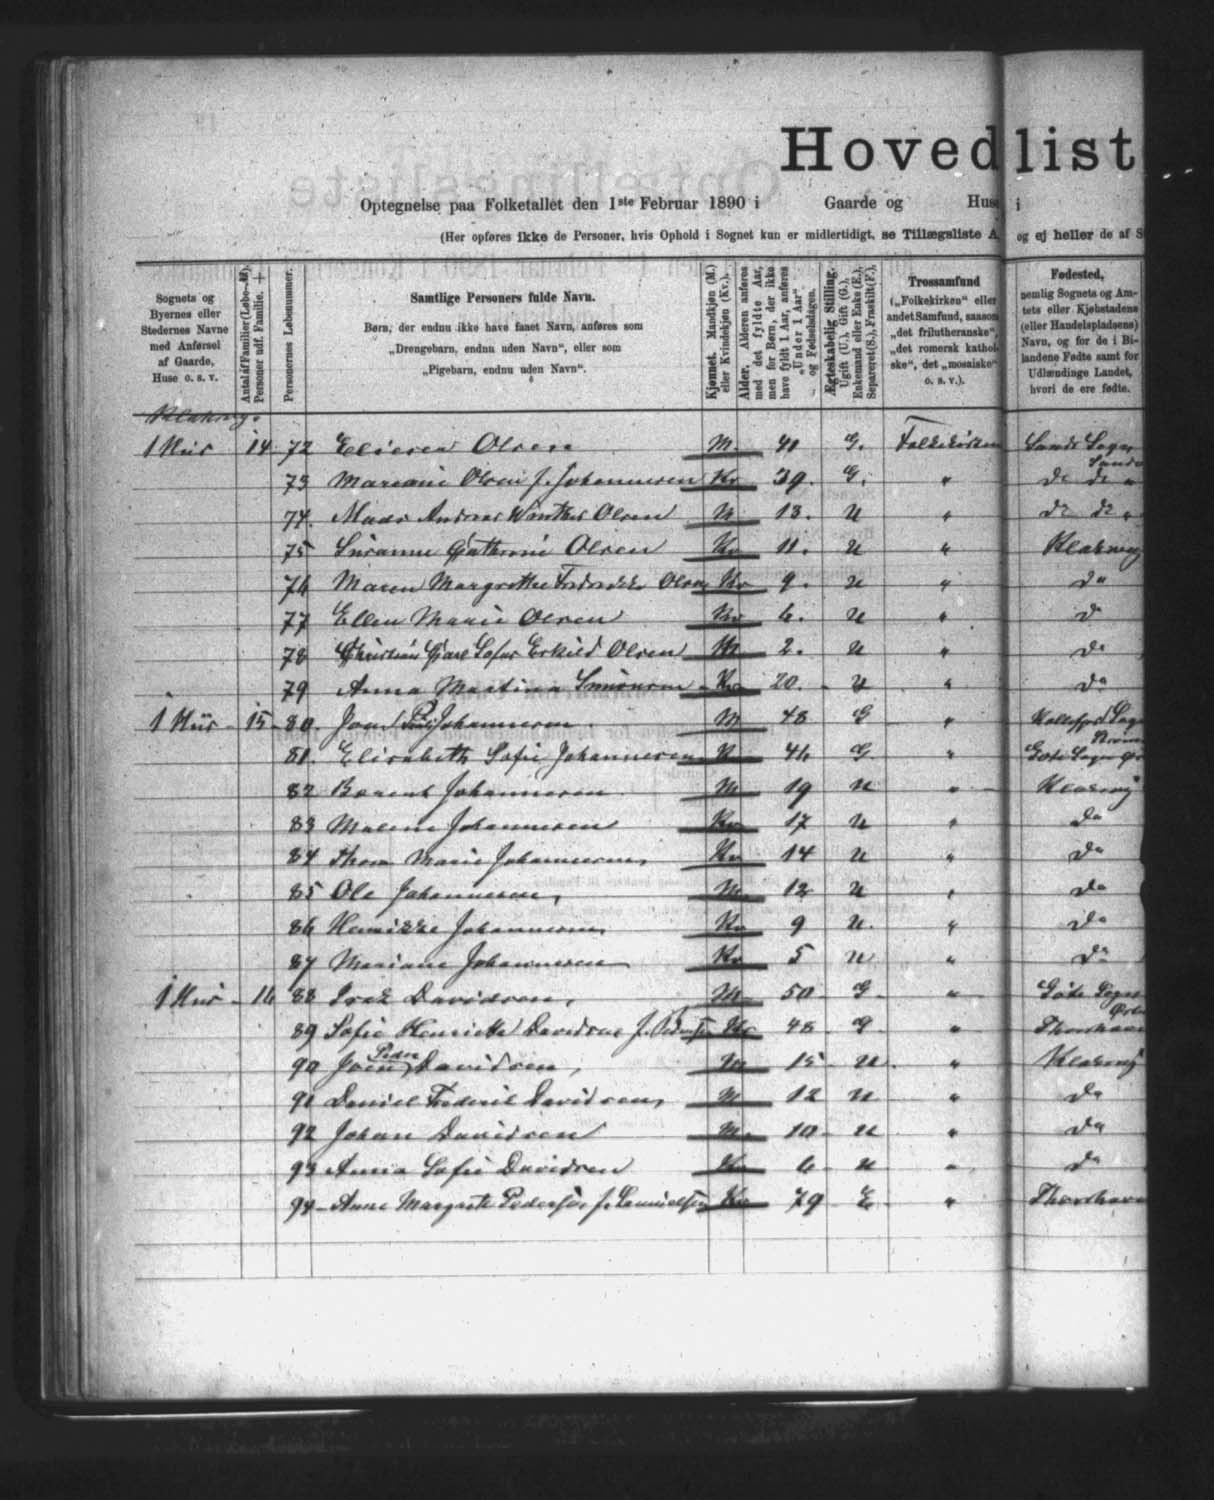 Hovedlist
Optegnelse paa Folketallet den 1ste Februar 1890 i Gaarde og Huse i
(Her opføres ikke de Personer, hvis Ophold i Sognet kun er midlertidigt, se Tillægsliste A, og ej heller de af S
Sognets og
Byernes eller
Stedernes Navne
med Anførsel
af Gaarde,
Huse o. s. v.
Antal af Familier (Løbe-№).
Personer udf. Familie.
Personernes Løbenummer.
Samtlige Personers fulde Navn.
Børn, der endnu ikke have faaet Navn, anføres som
„Drengebarn, endnu uden Navn", eller som
„Pigebarn, endnu uden Navn".
Kjønnet. Mandkjøn (M.)
eller Kvindekjøn (Kv.).
Alder. Alderen anføres
med det fyldte Aar,
men for Børn, der ikke
have fyldt 1 Aar, anføres
„Under 1 Aar"
og Fødselsdagen.
Ægteskabelig Stilling.
Ugift (U.), Gift (G.),
Enkemand eller Enke (E.),
Separeret (S.), Fraskilt (F.).
Trossamfund
(„Folkekirken" eller
andet Samfund, saasom
„det frilutheranske",
„det romersk kathol-
ske", det „mosaiske"
o. s. v.).
Fødested,
nemlig Sognets og Am-
tets eller Kjøbstadens
(eller Handelspladsens)
Navn, og for de i Bi-
landene Fødte samt for
Udlændinge Landet,
hvori de ere født.
Klaksvig.
1 Hus 14 72 Olsen M. 41 G. Folkekirken Sands Sogn
Sandø
73 Mariane Olsen f. Johannesen Kv 39. G. " do do "
74. Mads Andreas Winther Olsen M 13. U " do do "
75 Susanne Cathrine Olsen Kv 11. U " Klaksvig
76 Maren Margrethe Fredrikke Olsen Kv 9. U " do
77 Ellen Marie Olsen Kv 6. U " do
78 Christian Carl Sofus Eskild Olsen M 2. U " do
79 Anna Martina Simonsen Kv 20. U " do
1 Hus 15 80 Johannesen M 48 G " Kollefjord Sogn
81. Elisabeth Sofie Johannesen Kv 46 G. " Gøte Sogn
82 Johannesen M 19 U " Klaksvig
83 Malene Johannesen Kv 17 U " do
84 Marie Johannesen Kv 14 U " do
85 Ole Johannesen, M 12 U " do
86 Henrikke Johannesen Kv 9 U. " do
87 Mariane Johannesen Kv 5 U " do
1 Hus 16 88 Davidsen, M 50 G " Gøte Sogn
89 Sofie Henriette Davidsen f. Kv 48 G " Thorshavn
Peder
90 Joen Davidsen, M 15 U. " Klaksvig
91 Daniel Frederik Davidsen, M 12 U " do
92 Johan Davidsen M. 10 U " do
93 Anna Sofie Davidsen Kv 6 U " do
94 Anne Margrete Pedersen f. Kv 79 E " Thorshavn